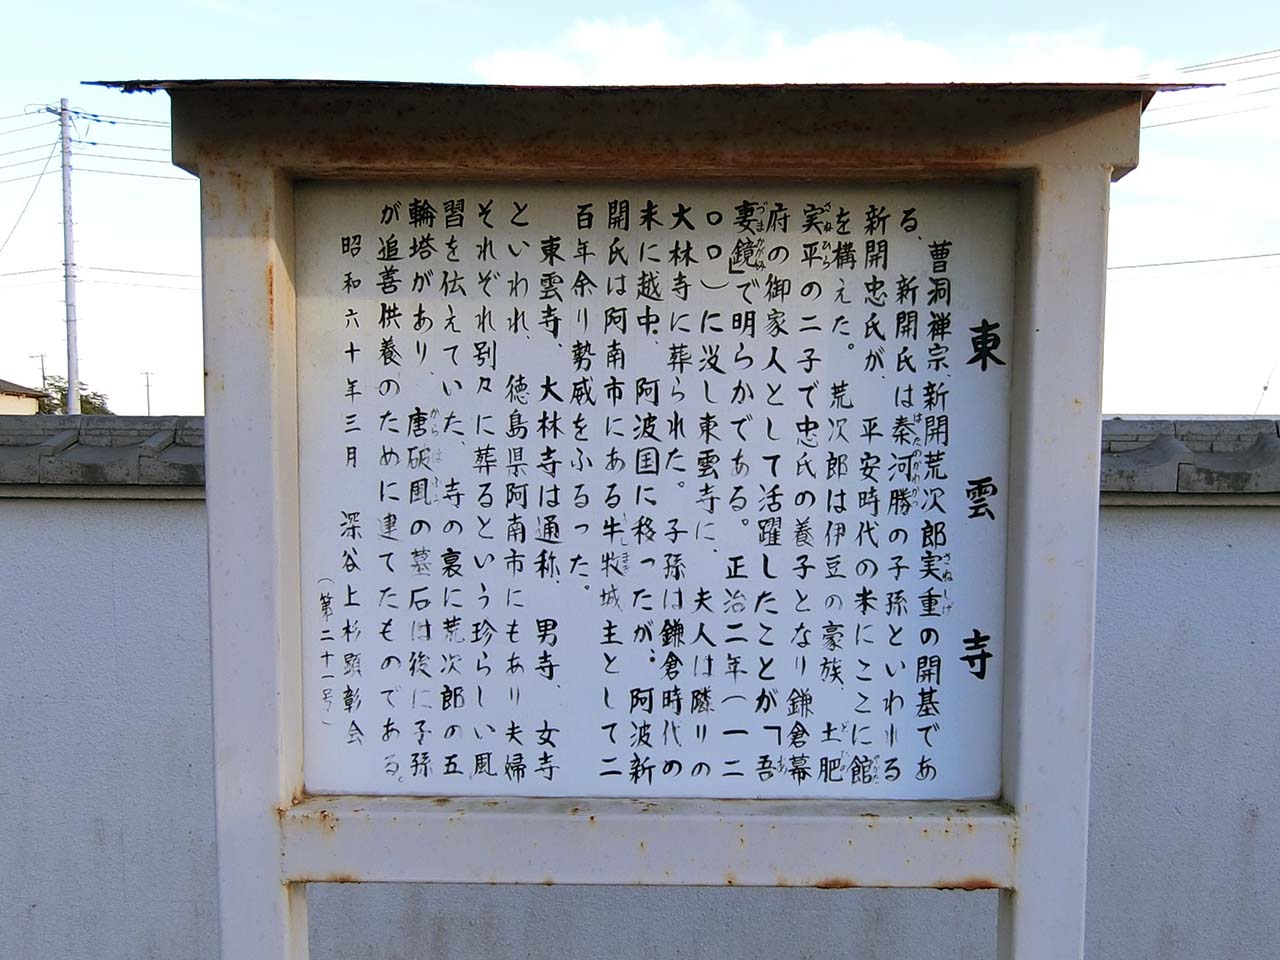 東雲寺
曹洞禅宗、新開荒次郎実重の開基であ
る、新開氏は秦河勝の子孫といわれる
新開忠氏が、平安時代の末にここに館
を構えた。荒次郎は伊豆の豪族、土肥
実平の二子で忠氏の養子となり鎌倉幕
府の御家人として活躍したことが「吾
妻鏡」で明らかである。正治二年(一二
〇〇)に没し東雲寺に、夫人は隣りの
大林寺に葬られた。子孫は鎌倉時代の
末に越中、阿波国に移ったが、阿波新
開氏は阿南市にある牛牧城主として二
百年余り勢威をふるった。
東雲寺、大林寺は通称、男寺、女寺
といわれ、徳島県阿南市にもあり夫婦
それぞれ別々に葬るという珍らしい風
習を伝えていた、寺の裏に荒次郎の五
輪塔があり、唐破風の墓石は後に子孫
が追善供養のために建てたものである。
昭和六十年三月 深谷上杉顕彰会
(第二十一号)